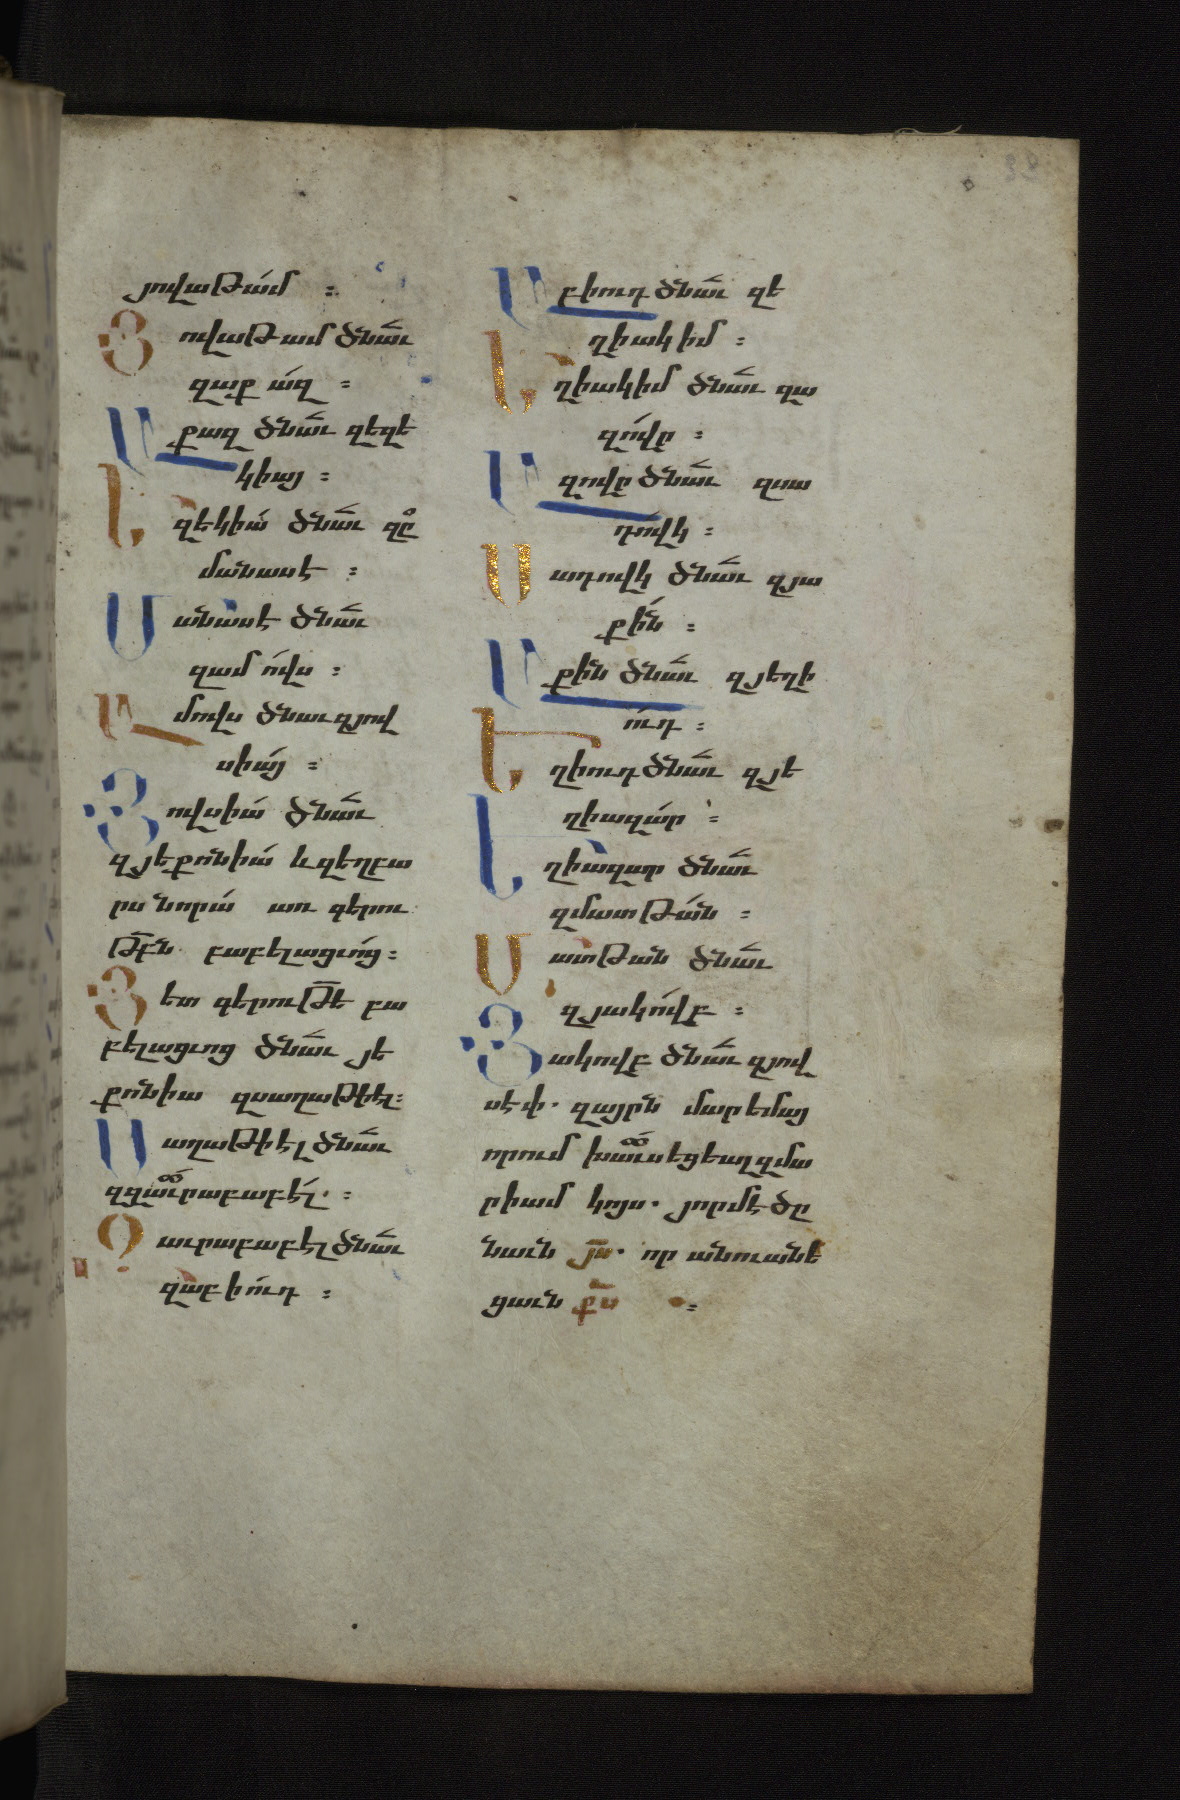 յովաթամ ։
Յովաթամ ծնաւ
զաքազ ։
Աքազ ծնաւ զեզե
կիայ ։
Եզեկիա ծնաւ զը
մանասէ ։
Մանասէ ծնաւ
զամովս ։
Ամովս ծնաւ զյով
սիայ ։
Յովսիա ծնաւ
զյեքոնիա և զեղբա
րս նորա առ գերու
թբն բաբելացւոց ։
Յետ գերութե բա
բելացւոց ծնաւ յե
քոնիա զսաղաթիէլ ։
Սաղաթիէլ ծնաւ
զզաւրաբաբէլ ։
Զաւրաբաբել ծնաւ
զաբիուդ ։
Աբիուդ ծնաւ զե
ղիակիմ ։
Եղիակիմ ծնաւ զա
զովր ։
Ազովր ծնաւ զսա
դովկ ։
Սադովկ ծնաւ զյա
քին ։
Աքին ծնաւ զյեղի
ուդ ։
Եղիուդ ծնաւ զյե
ղիազար ։
Եղիազար ծնաւ
զմատթան ։
Մատթան ծնաւ
զյակովբ ։
Յակովբ ծնաւ զյով
սէփ․ զայրն մարեմայ
որում խաւսեցեալ զմա
րիամ կոյս․ յորմէ ծը
նաւն յս․ որ անուանե
ցաւն քս ։